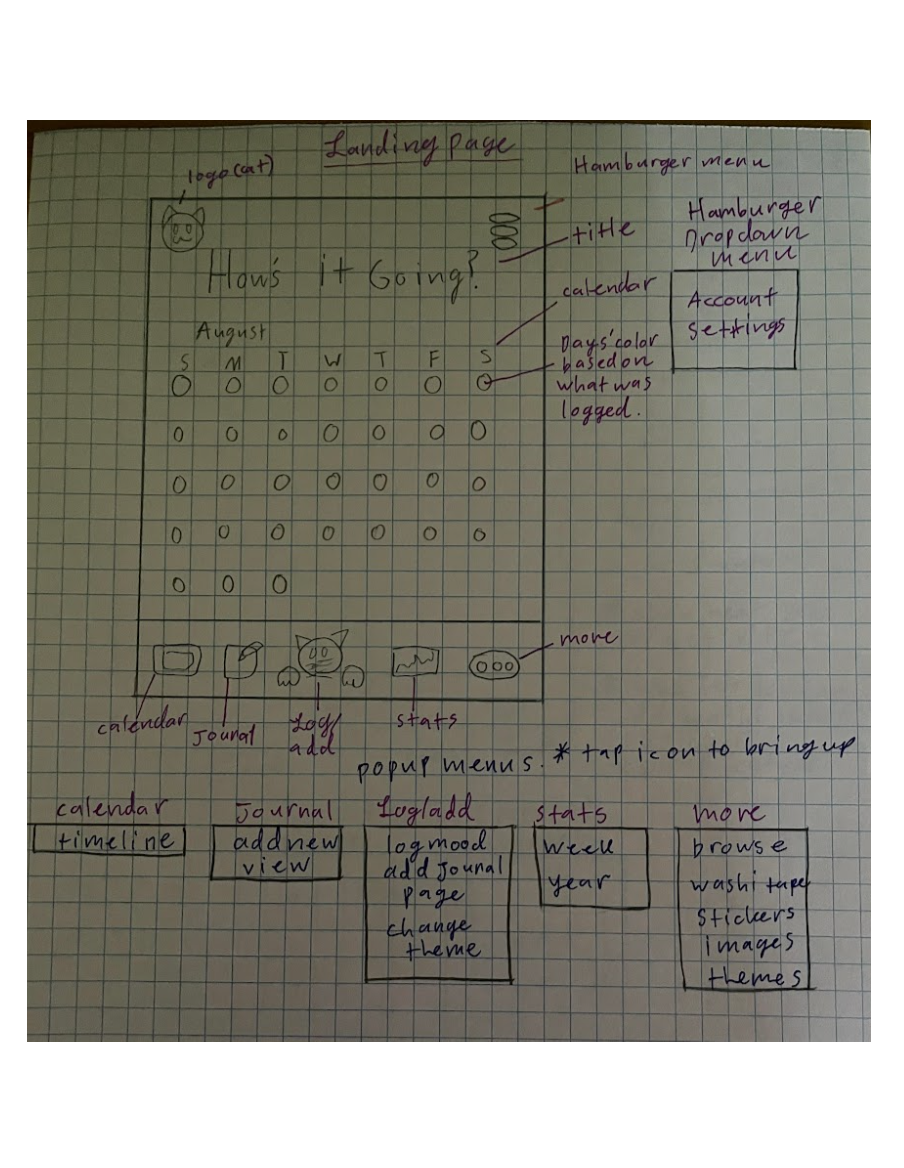 Landing page
logo(cat)
Hamburger menu
How's it Going?
title
Hamburger
Dropdown
menu
Account
settings
calendar
August
S M T W T F S
Days' color
based on
what was
logged.
more
calendar
Jounal
Log/
add
stats
popup menus. * tap icon to bring up
calendar
timeline
Journal
add new
view
Log/add
log mood
add Jounal
page
change
theme
stats
week
year
more
browse
washi tape
stickers
images
themes